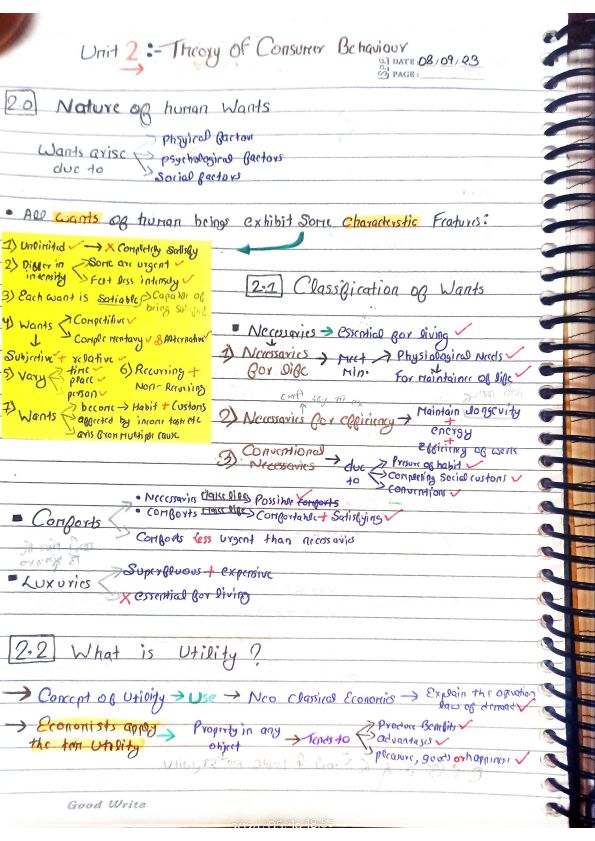 Unit 2 :- Theory of Consumer Behaviour
DATE: 08/09/23
PAGE:
2.0 Nature of human Wants
Wants arise due to
Phyical factors
psychological factors
Social factors
• All wants of human beings exhibit Some characterstic Features:
1) Unlimited ✓ → x Completly Satisfy
2) Differ in intensity
Some are urgent ✓
Felt less intensly ✓
3) Each want is Satiable
Capable of being
4) Wants
Competitive ✓
Complementary ✓ & Alternative ✓
↓
Subjective + relative ✓
5) Vary
time ✓
place ✓
person ✓
6) Recurring +
Non-Recurring
7) Wants
become → Habit + Customs
affected by income taste etc
aris from multiple cause
2.1 Classification of Wants
▪ Necessaries → essential for living ✓
1) Necessaries for life → Meet Min.
Physiological Needs ✓
For maintainer of life ✓
2) Necessaries for efficiency →
Maintain longevity
+
energy
+
Efficiency of work
3) Conventional Necessaries → due to
Presure of habit ✓
Compleing Social customs ✓
Conventions ✓
▪ Comforts
• Necessarie make life Possible
• Comforts make life Comfortable + Satisfying ✓
Comforts less urgent than necessaries
▪ Luxuries
Superfluous + expensive
x essential for living
2.2 What is Utility ?
→ Concept of Utility → Use → Neo Classical Economics → Explain the operation law of demand ✓
→ Economists apply the term Utility → Property in any object → Tends to
Produce Benefits ✓
advantages ✓
pleasure, goods or happiness ✓
Good Write